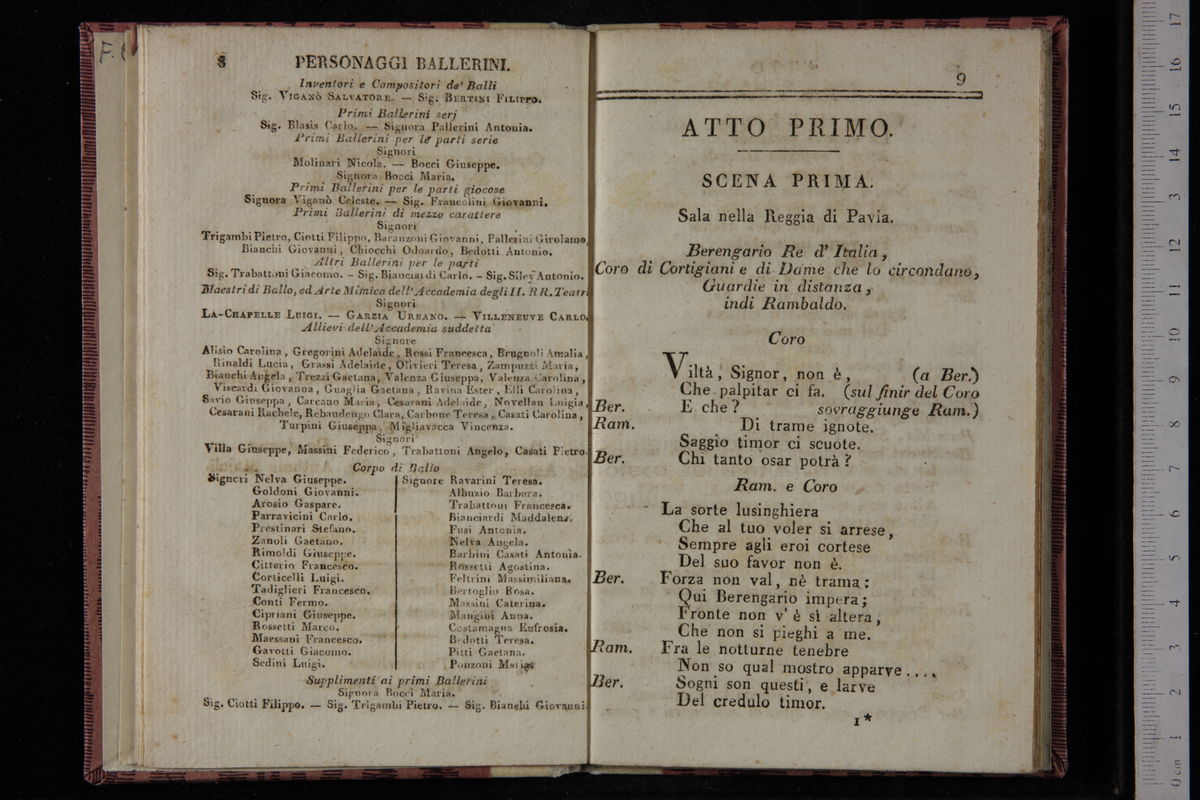 F.
8
PERSONAGGI BALLERINI.
Inventori e Compositori de' Balli
Sig. VIGANÒ SALVATORE. — Sig. BERTINI FILIPPO.
Primi Ballerini serj
Sig. Blasis Carlo. — Signora Pallerini Antonia.
Primi Ballerini per le parti serie
Signori
Molinari Nicola. — Bocci Giuseppe.
Signora Bocci Maria.
Primi Ballerini per le parti giocose
Signora Viganò Celeste. — Sig. Francolini Giovanni.
Primi Ballerini di mezzo carattere
Signori
Trigambi Pietro, Ciotti Filippo, Baranzoni Giovanni, Pallerini Girolamo,
Bianchi Giovanni, Chiocchi Odoardo, Bedotti Antonio.
Altri Ballerini per le parti
Sig. Trabattoni Giacomo. - Sig. Bianciardi Carlo. - Sig. Siley Antonio.
Maestri di Ballo, ed Arte Mimica dell' Accademia degli II. RR. Teatri
Signori
LA-CHAPELLE LUIGI. — GARZIA URBANO. — VILLENEUVE CARLO.
Allievi dell' Accademia suddetta
Signore
Alisio Carolina, Gregorini Adelaide, Rossi Francesca, Brugnoli Amalia,
Rinaldi Lucia, Grassi Adelaide, Olivieri Teresa, Zampuzzi Maria,
Bianchi Angela, Trezzi Gaetana, Valenza Giuseppa, Valenza Carolina,
Viscardi Giovanna, Guaglia Gaetana, Ravina Ester, Elli Carolina,
Savio Giuseppa, Carcano Maria, Cesarani Adelaide, Novellau Luigia,
Cesarani Rachele, Rebaudengo Clara, Carbone Teresa, Casati Carolina,
Turpini Giuseppa, Migliavacca Vincenza.
Signori
Villa Giuseppe, Massini Federico, Trabattoni Angelo, Casati Pietro.
Corpo di Ballo
Signori Nelva Giuseppe.
Goldoni Giovanni.
Arosio Gaspare.
Parravicini Carlo.
Prestinari Stefano.
Zanoli Gaetano.
Rimoldi Giuseppe.
Citterio Francesco.
Corticelli Luigi.
Tadiglieri Francesco.
Conti Fermo.
Cipriani Giuseppe.
Rossetti Marco.
Maessani Francesco.
Gavotti Giacomo.
Sedini Luigi.
Signore Ravarini Teresa.
Albuzio Barbara.
Trabattoni Francesca.
Bianciardi Maddalena.
Fusi Antonia.
Nelva Angela.
Barbini Casati Antonia.
Rossetti Agostina.
Feltrini Massimiliana.
Bertoglio Rosa.
Massini Caterina.
Mangini Anna.
Costamagna Eufrosia.
Bedotti Teresa.
Pitti Gaetana.
Ponzoni Maria.
Supplimenti ai primi Ballerini
Signora Bocci Maria.
Sig. Ciotti Filippo. — Sig. Trigambi Pietro. — Sig. Bianchi Giovanni.
9
ATTO PRIMO.
SCENA PRIMA.
Sala nella Reggia di Pavia.
Berengario Re d' Italia,
Coro di Cortigiani e di Dame che lo circondano,
Guardie in distanza,
indi Rambaldo.
Coro
Viltà, Signor, non è, (a Ber.)
Che palpitar ci fa. (sul finir del Coro
Ber. E che? sovraggiunge Ram.)
Ram. Di trame ignote.
Saggio timor ci scuote.
Ber. Chi tanto osar potrà?
Ram. e Coro
La sorte lusinghiera
Che al tuo voler si arrese,
Sempre agli eroi cortese
Del suo favor non è.
Ber. Forza non val, nè trama:
Qui Berengario impera;
Fronte non v' è sì altera,
Che non si pieghi a me.
Ram. Fra le notturne tenebre
Non so qual mostro apparve....
Ber. Sogni son questi, e larve
Del credulo timor.
1*
0 cm 1 2 3 4 5 6 7 8 9 10 11 12 13 14 15 16 17